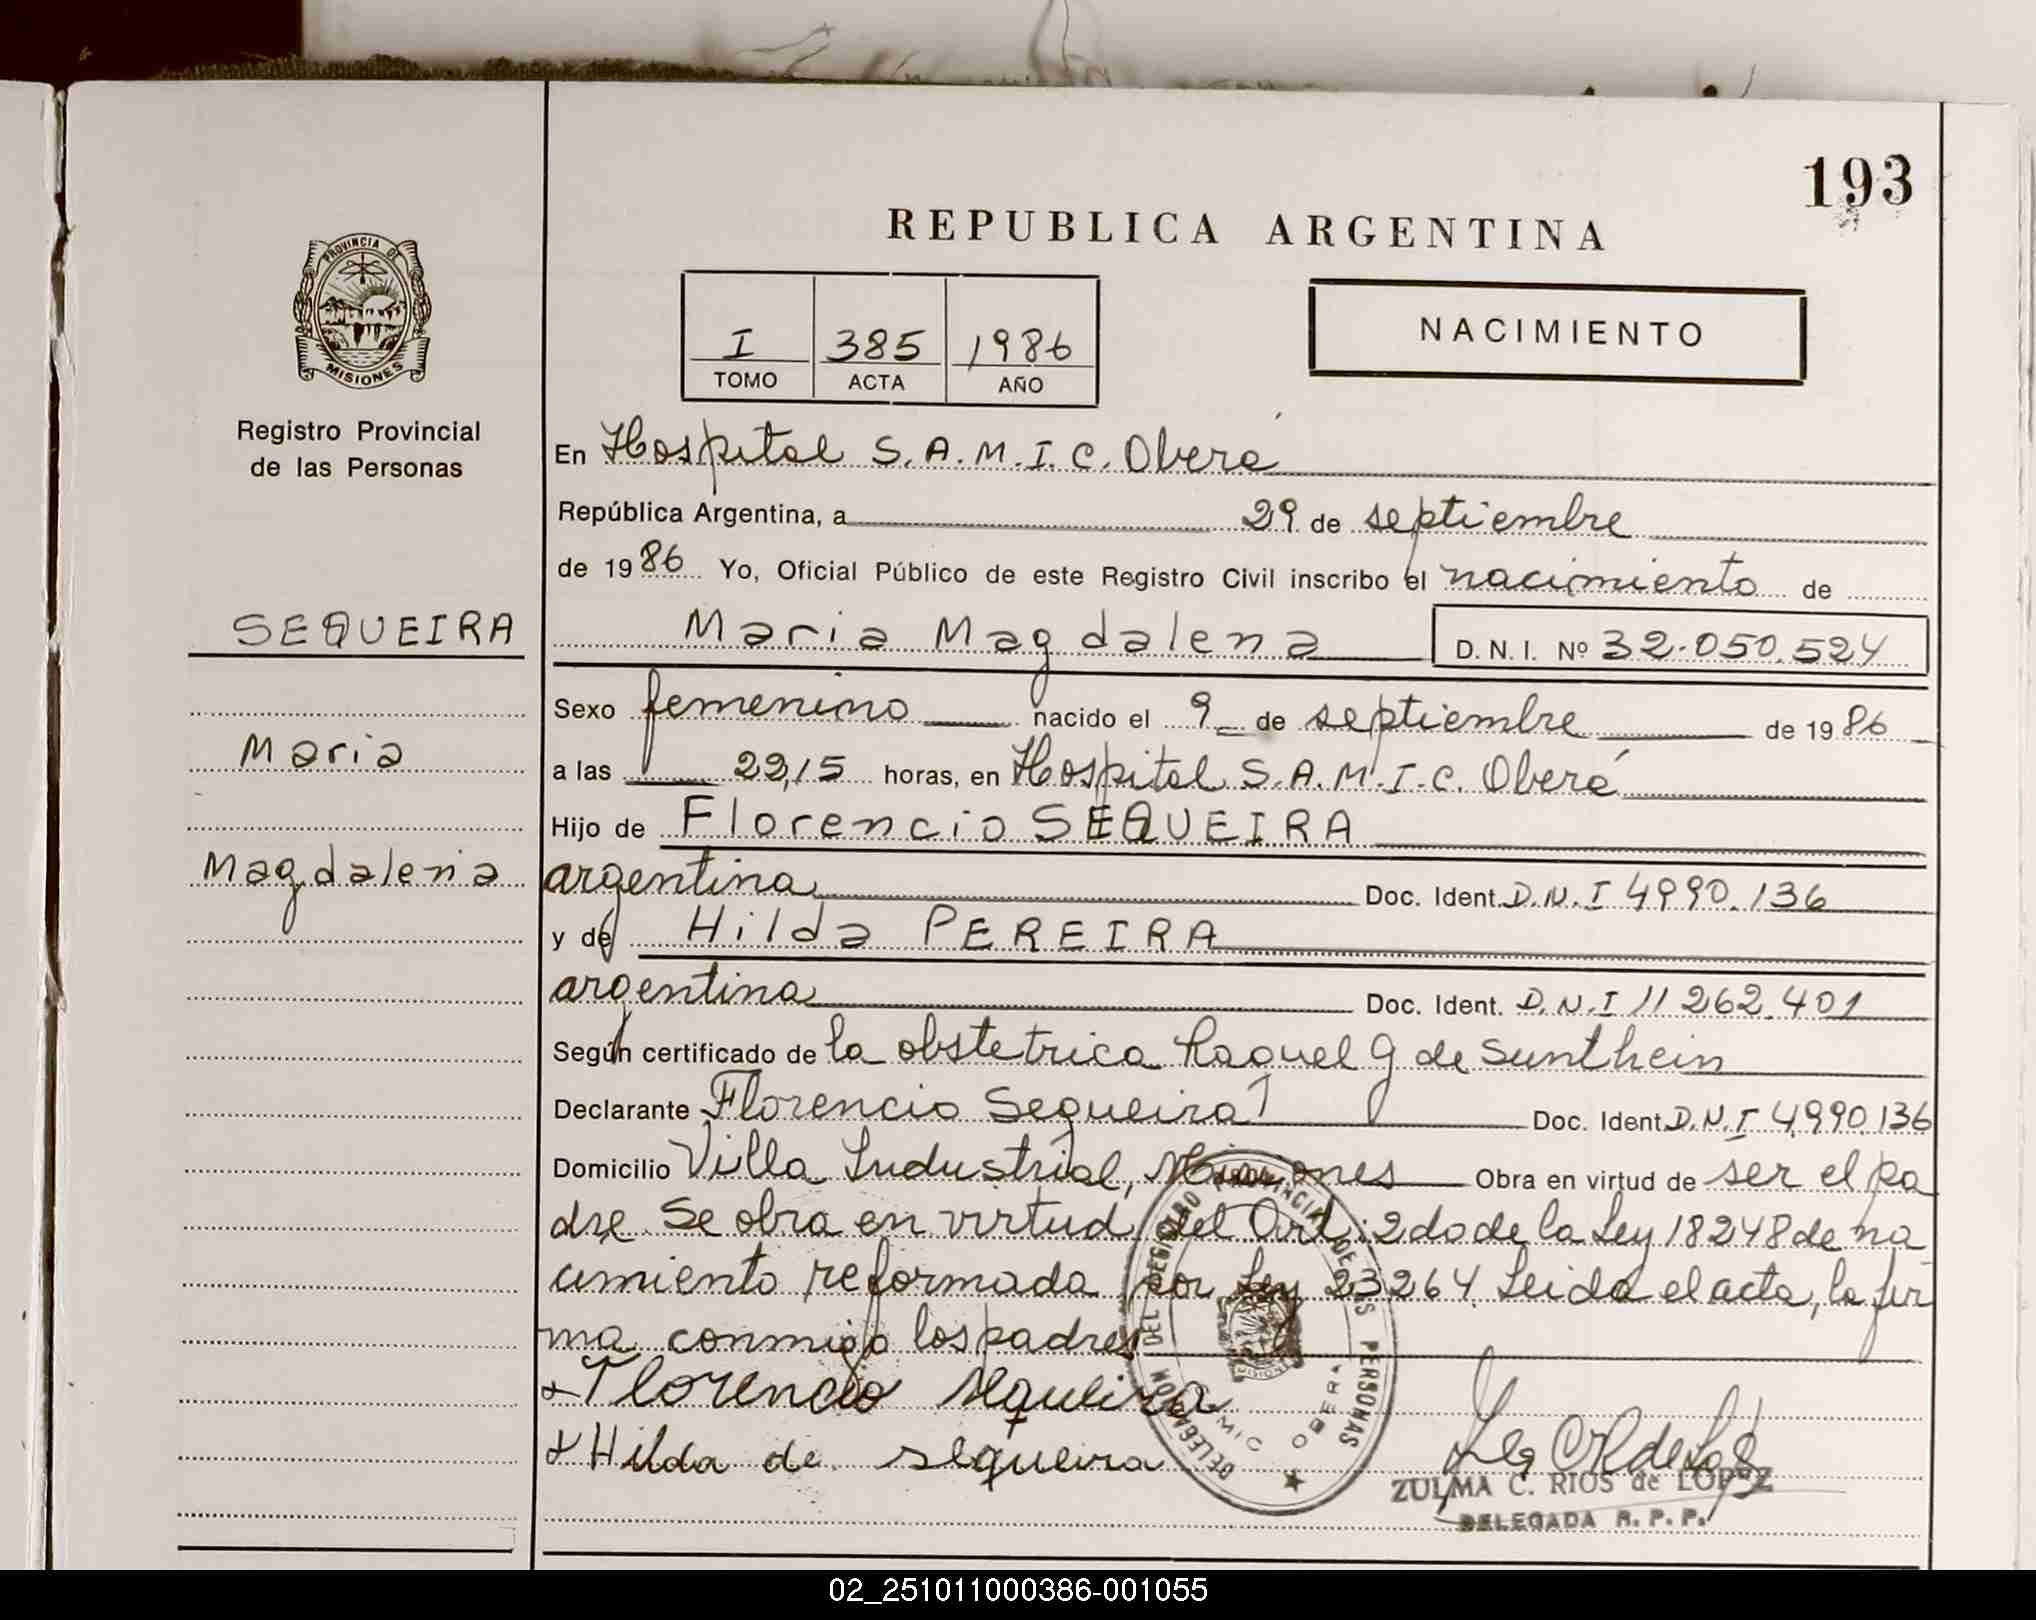 193
REPUBLICA ARGENTINA
PROVINCIA DE
MISIONES
Registro Provincial
de las Personas
I 385 1986
TOMO ACTA AÑO
NACIMIENTO
En Hospital S.A.M.I.C. Oberá
República Argentina, a 29 de septiembre
de 1986 Yo, Oficial Público de este Registro Civil inscribo el nacimiento de
SEQUEIRA
Maria Magdalena D. N. I. Nº 32.050.524
Sexo femenino nacido el 9 de septiembre de 1986
Maria
a las 22,15 horas, en Hospital S.A.M.I.C. Oberá
Hijo de Florencio SEQUEIRA
Magdalena
argentina Doc. Ident. D.N.I 4990.136
y de Hilda PEREIRA
argentina Doc. Ident. D.N.I 11262.401
Según certificado de la obstetrica Raquel G de Sunthein
Declarante Florencio Sequeira Doc. Ident. D.N.I 4.990.136
Domicilio Villa Industrial, Misiones Obra en virtud de ser el pa
dre. Se obra en virtud del Art: 2do de la Ley 18248 de na
cimiento reformada por Ley 23264. Leida el acta, la fir
ma conmigo los padres
Florencio sequeira
Hilda de sequeira
DELEGACION DEL REGISTRO PROVINCIAL DE LAS PERSONAS
OBERA
ZULMA C. RIOS de LOPEZ
DELEGADA R. P. P.
02_251011000386-001055